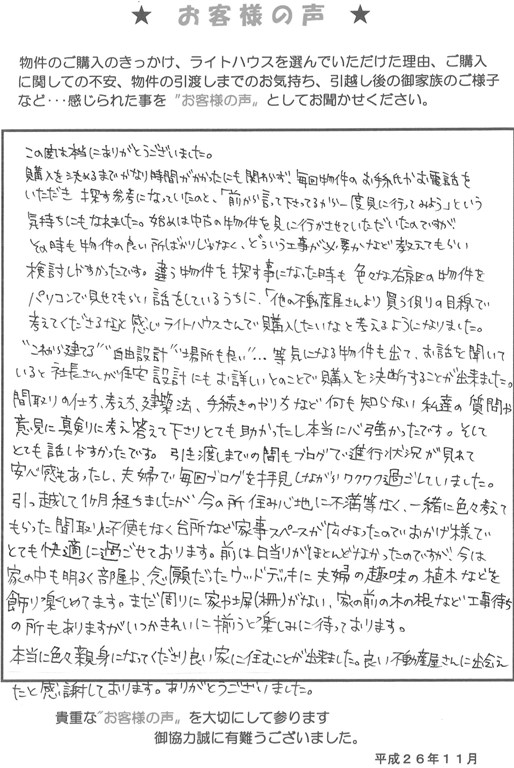 ★ お客様の声 ★
物件のご購入のきっかけ、ライトハウスを選んでいただけた理由、ご購入
に関しての不安、物件の引渡しまでのお気持ち、引越し後の御家族のご様子
など･･･感じられた事を〝お客様の声〟としてお聞かせください。
この度は本当にありがとうございました。
購入を決めるまでかなり時間がかかったにも関わらず、毎回物件のお手紙やお電話を
いただき 探す参考になっていたのと、「前から言って下さってるから一度見に行ってみよう」という
気持ちにもなれました。始めは中古の物件を見に行かせていただいたのですが、
その時も物件の良い所ばかりじゃなく、どういう工事が必要かなど教えてもらい
検討しやすかったです。違う物件を探す事になった時も色々な右京区の物件を
パソコンで見せてもらい話をしているうちに、「他の不動産屋さんより買う側の目線で
考えてくださるなと感じライトハウスさんで購入したいなと考えるようになりました。
〝これから建てる〟〝自由設計〟〝場所も良い〟…等気になる物件も出て、お話を聞いて
いると社長さんが住宅設計にもお詳しいとのことで購入を決断することが出来ました。
間取りの仕方、考え方、建築法、手続きのやり方など何も知らない私達の質問や
意見に真剣に考え答えて下さりとても助かったし本当に心強かったです。そして
とても話しやすかったです。引き渡しまでの間もブログで進行状況が見れて
安心感もあったし、夫婦で毎回ブログを拝見しながらワクワク過ごしていました。
引っ越して1ヶ月経ちましたが今の所住み心地に不満等なく、一緒に色々考えて
もらった間取りに不便もなく台所など家事スペースが広くなったのでおかげ様で
とても快適に過ごせております。前は日当りがほとんどなかったのですが、今は
家の中も明るく部屋や、念願だったウッドデッキに夫婦の趣味の植木などを
飾り楽しめてます。まだ周りに家や塀(柵)がない、家の前の木の根など工事待ち
の所もありますがいつかきれいに揃うと楽しみに待っております。
本当に色々親身になってくださり良い家に住むことが出来ました。良い不動産屋さんに出会え
たと感謝しております。ありがとうございました。
貴重な〝お客様の声〟を大切にして参ります
御協力誠に有難うございました。
平成26年11月